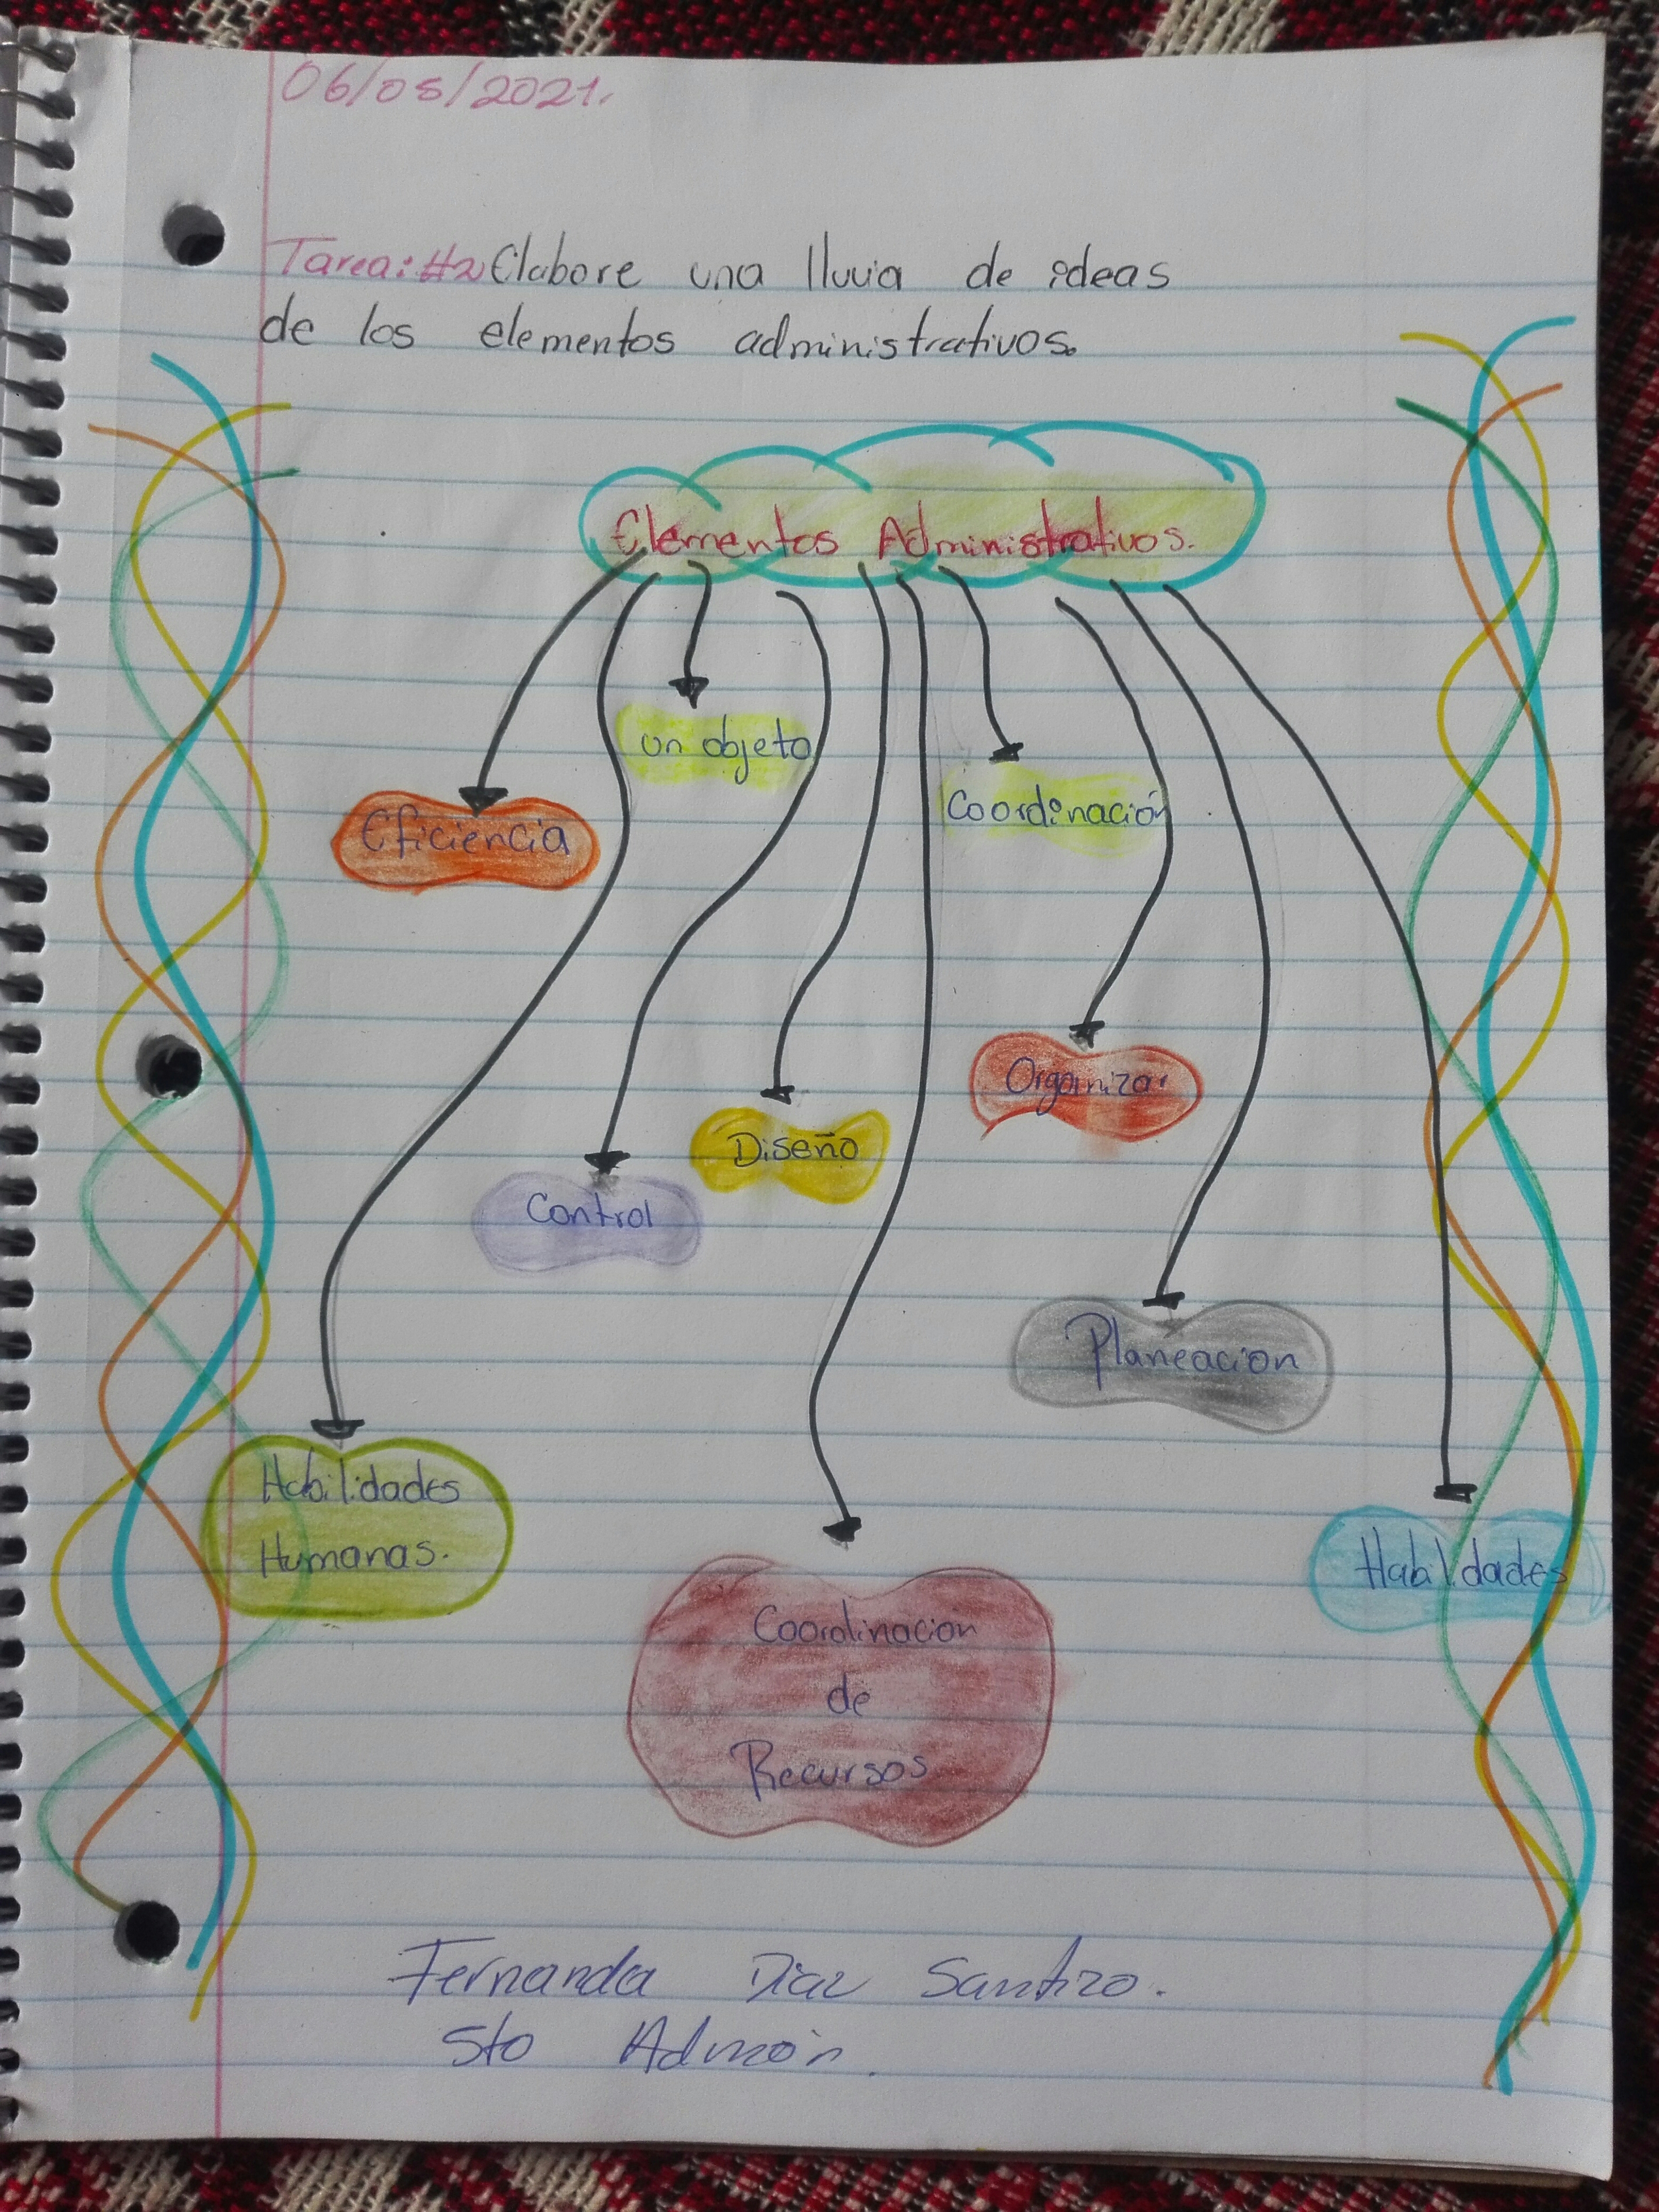 06/05/2021.
Tarea: #2 Elabore una lluvia de ideas
de los elementos administrativos.
Elementos Administrativos.
un objeto
Coordinación
Eficiencia
Organizar
Diseño
Control
Planeacion
Habilidades
Humanas.
Habilidades
Coordinacion
de
Recursos
Fernanda Diaz Santizo.
5to Admón.